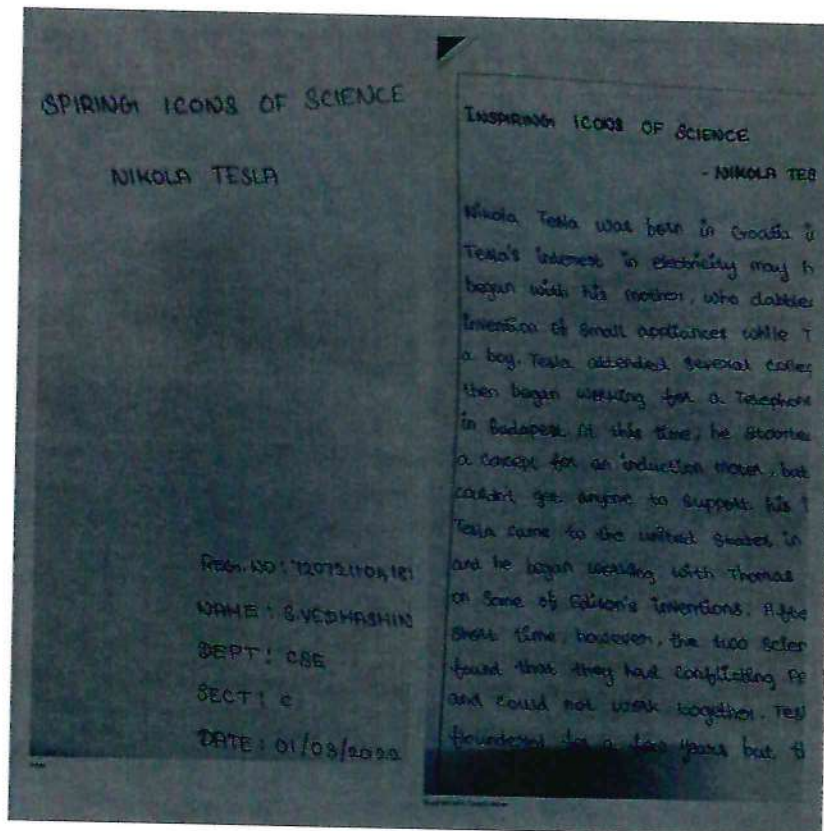 SPIRING ICONS OF SCIENCE
NIKOLA TESLA
REG. NO : 720721104181
NAME : S.VEDHASHIN
DEPT : CSE
SECT : C
DATE : 01/03/2022
INSPIRING ICONS OF SCIENCE
- NIKOLA TES
Nikola Tesla was born in Croatia i
Tesla's interest in electricity may h
began with his mother, who dabble
invention of small appliances while T
a boy. Tesla attended several colle
then began working for a Telephone
in Budapest. At this time, he started
a concept for an induction motor, but
couldn't get anyone to support his
Tesla came to the united States in
and he began working with Thomas
on some of Edison's inventions. Afte
short time, however, the two scien
found that they had conflicting Pe
and could not work together. Tes
floundered for a few years but th